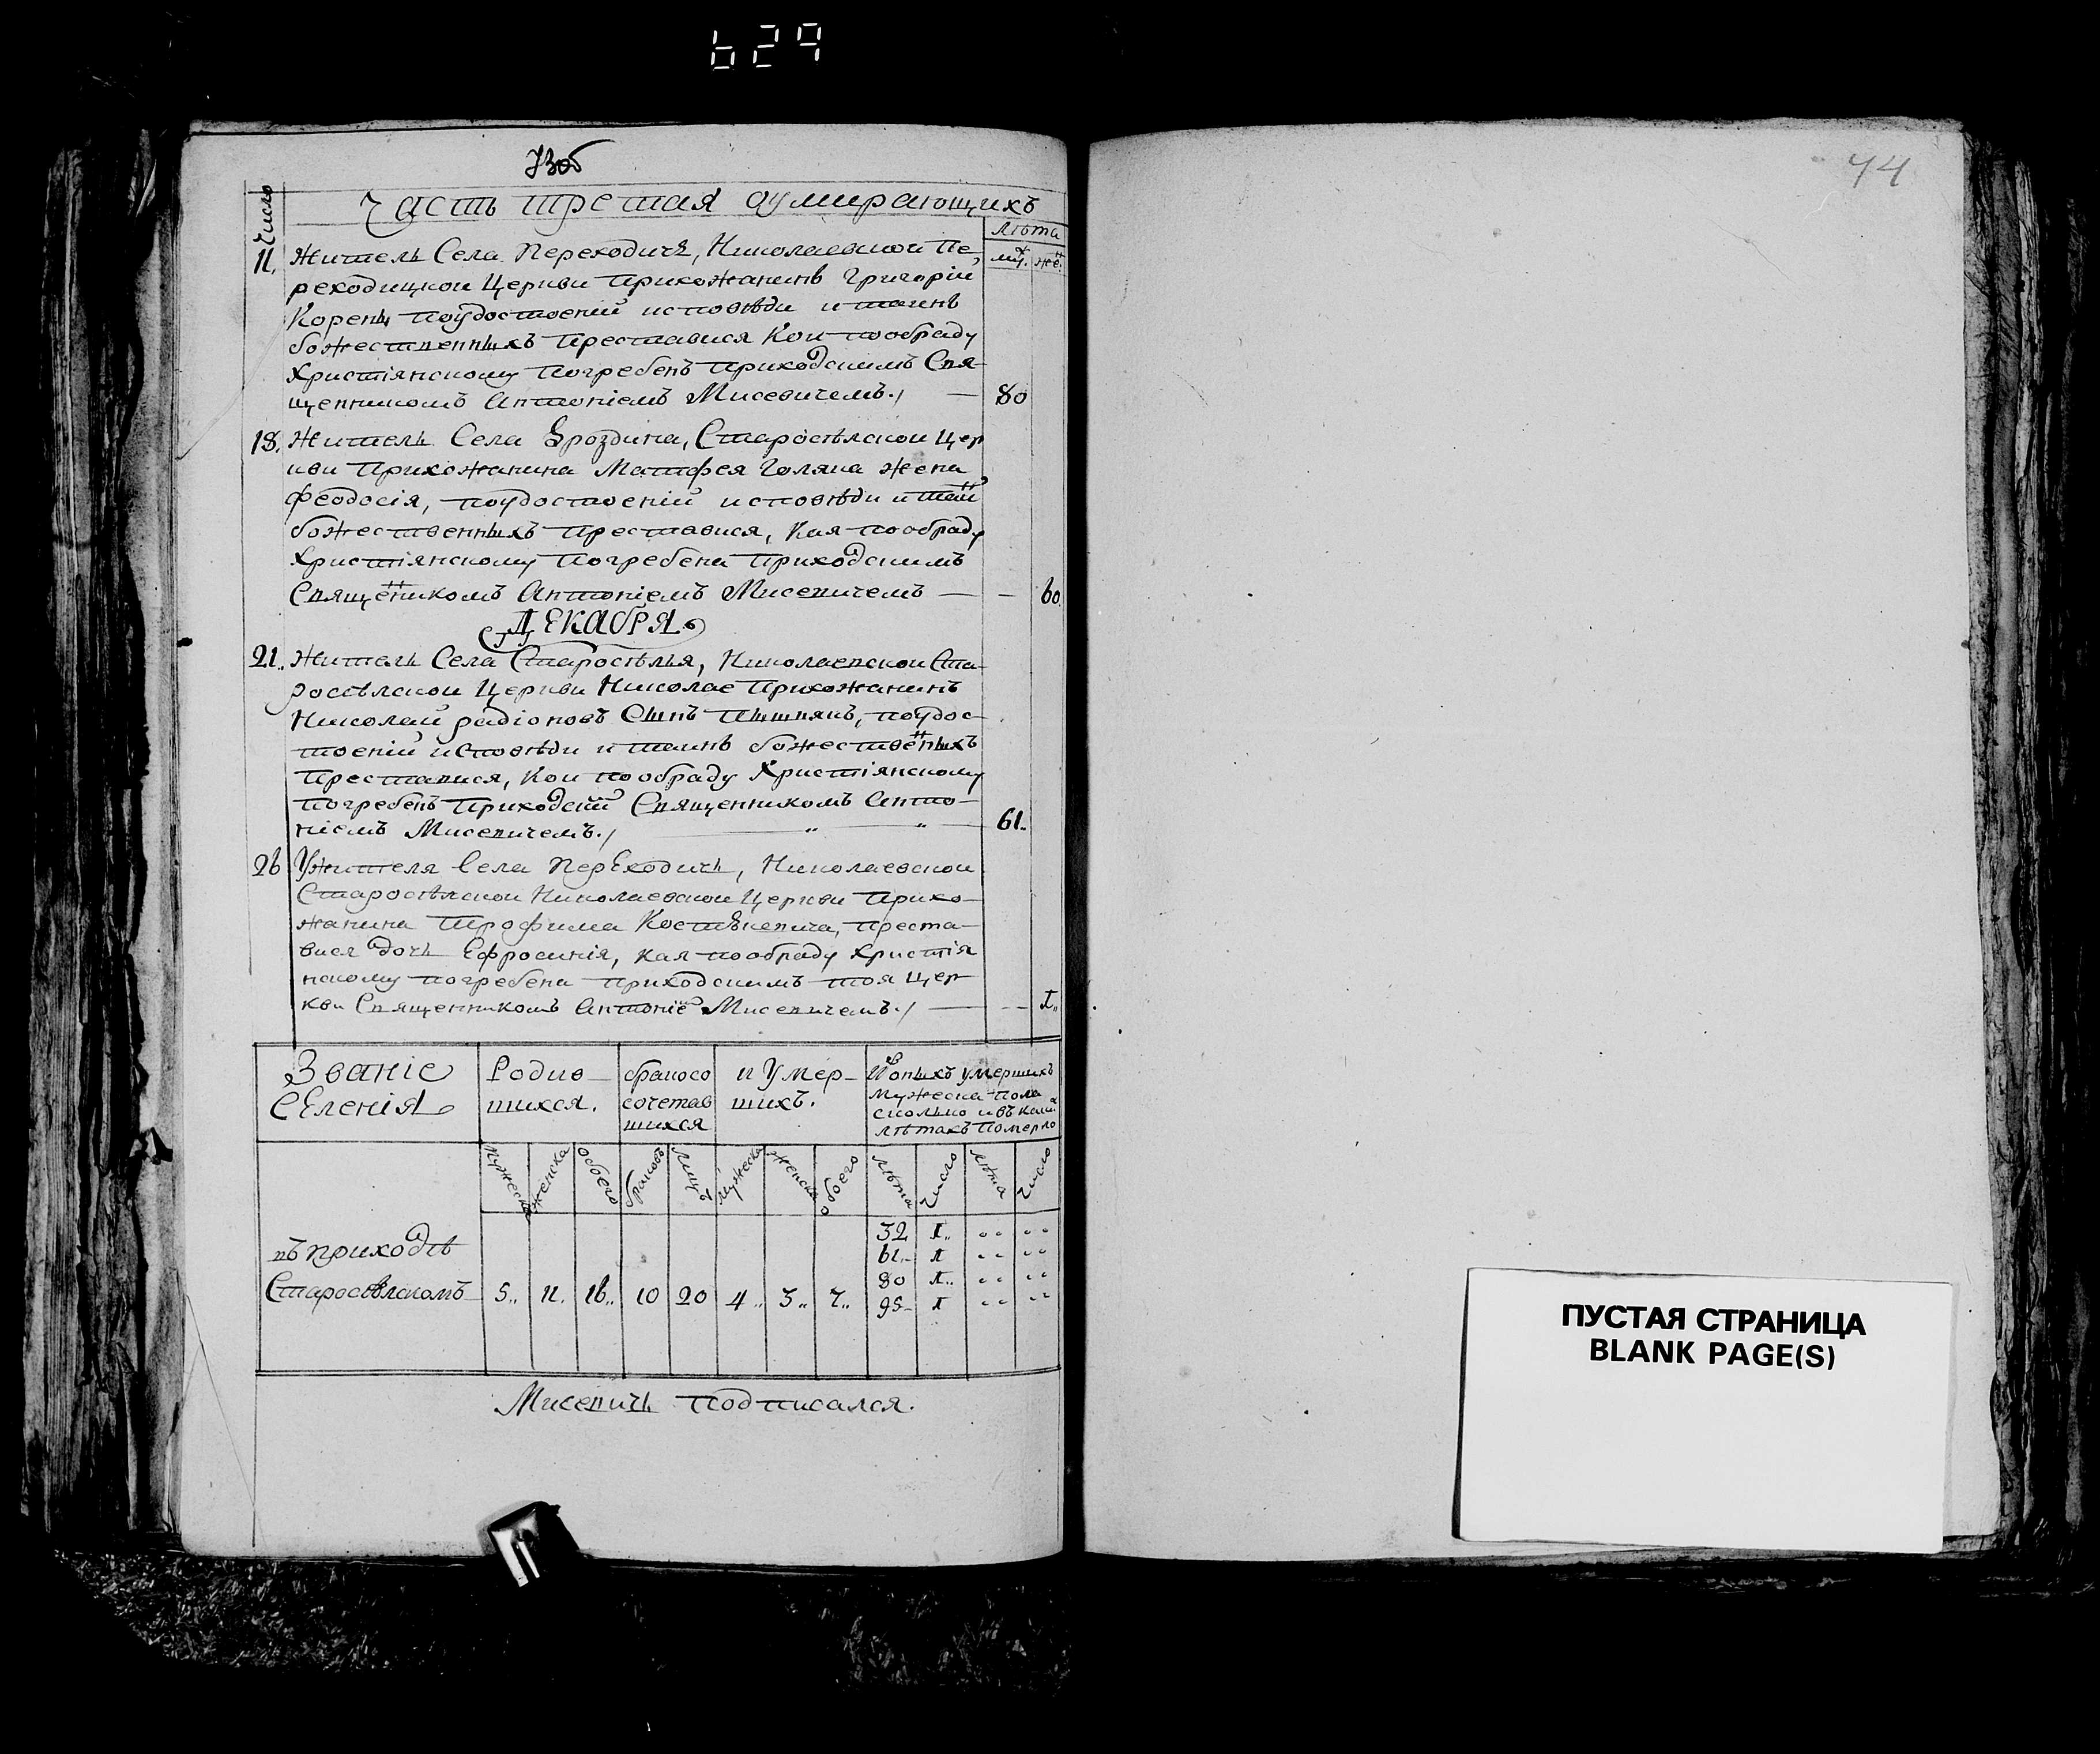 629
73об
44
Число
Часть третая оумирающихъ
Лѣта
му. же.
11. Житель Села Переходичъ, Николаевской Пе-
реходицкой Церкви Прихожанинъ Григорій
Корень поудостоеній исповѣди и таинъ
божественныхъ Преставися Кои пообраду
Христіянскому Погребенъ Приходскимъ Свя-
щенникомъ Антоніемъ Мисевичемъ./ — 80
18. Житель Села Дроздина, Старосѣлской Цер
кви Прихожанина Матфея Голяка жена
Феодосія, поудостоеній исповѣди и таи
божественныхъ Преставися, Кая пообраду
Христіянскому Погребена Приходскимъ
Священикомъ Антоніемъ Мисевичемъ — — 60
ДЕКАБРЯ
21. Житель Села Старосѣлья, Николаевской Ста-
росѣлской Церкви Николае Прихожанинъ
Николай радіоновъ Сынъ Пышнякъ, поудос-
тоеній исповѣди и таинъ божественыхъ
Преставися, Кои пообраду Христіянскому
погребенъ Приходскій Священникомъ Анто-
ніемъ Мисевичемъ./ — 61.
26 Ужителя Села ПерЕходичъ, Николаевской
Старосѣлской Николаевской Церкви Прихо-
жанина Трофима Костѣкевича, преста-
вися дочь Ефросинія, кая пообраду Христія
нскому погребена приходскимъ тоя Цер
кви Священникомъ Антоніе Мисевичемъ./ — — 1..
Званіе СЕленія
Родив-шихся.
бракосо сочетав шихся
и Умер-шихъ.
Изъ оныхъ умершихъ мужеска пола сколько и въ каки лѣтахъ померло
мужеска женска обоего браковъ лицъ мужеска женска обоего лѣта число лѣта число
въ приходѣ
Старосѣлскомъ 5.. 11. 16.. 10 20 4.. 3.. 7..
32 1..
61.. 1
80 1..
95- 1
Мисевичъ подписался.
ПУСТАЯ СТРАНИЦА
BLANK PAGE(S)